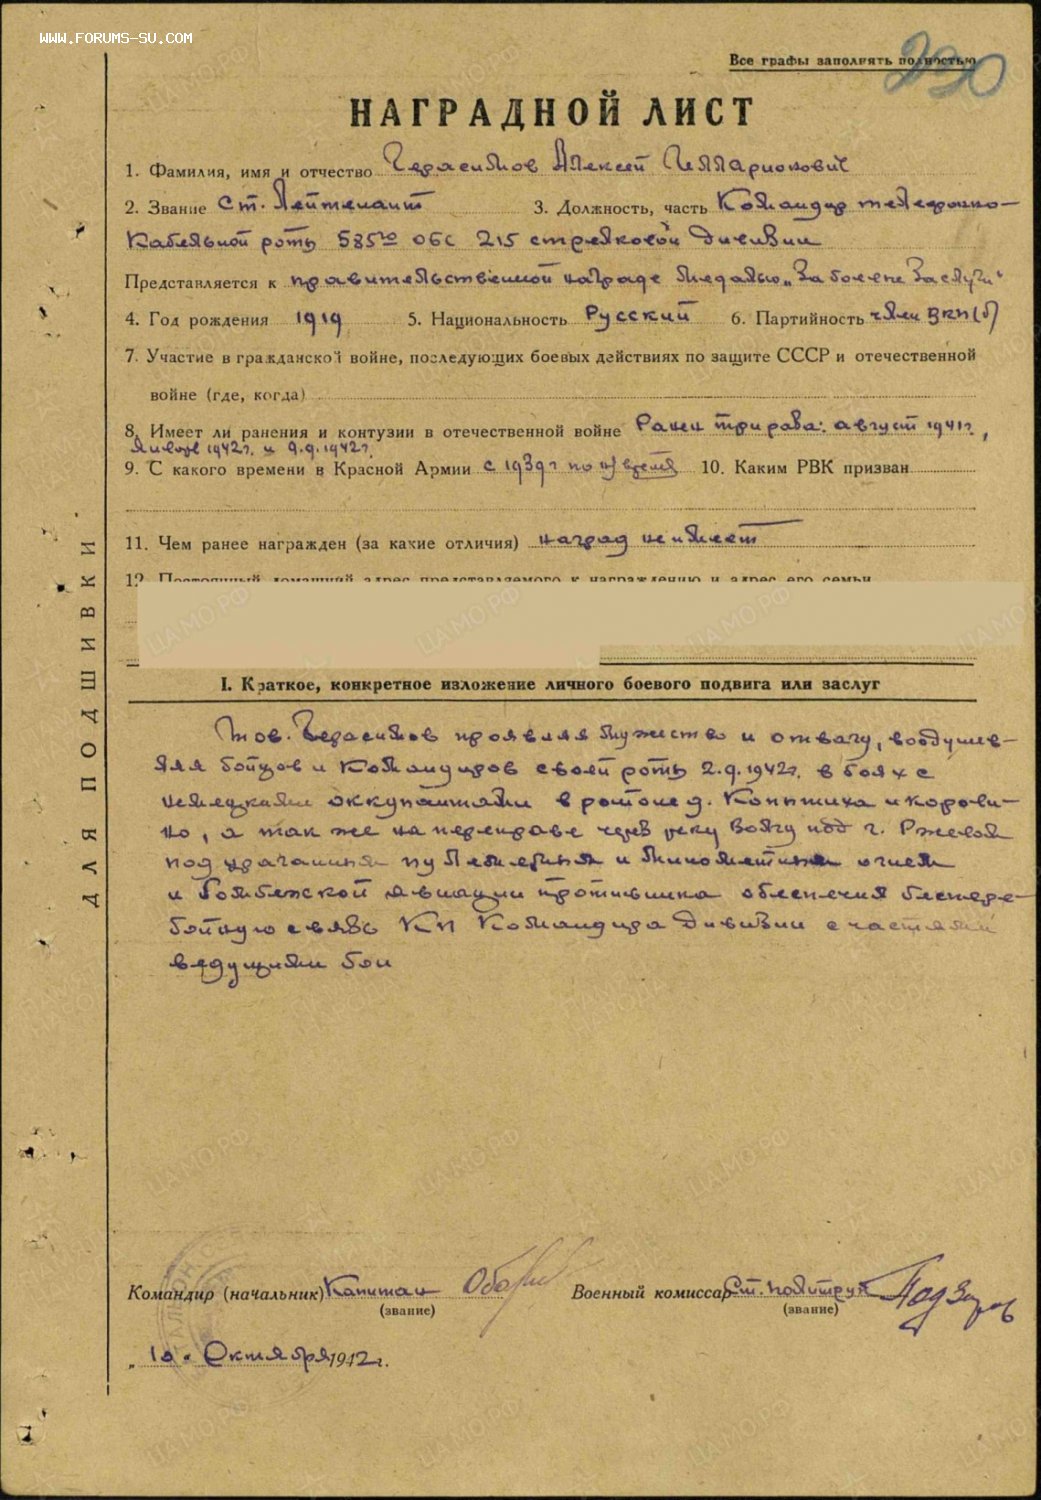 WWW.FORUMS-SU.COM
Все графы заполнять полностью
230
НАГРАДНОЙ ЛИСТ
1. Фамилия, имя и отчество Герасимов Алексей Илларионович
2. Звание Ст. Лейтенант 3. Должность, часть Командир телефонно-
кабельной роты 585го ОБС 215 стрелковой дивизии
Представляется к правительственной награде медалью „За боевые заслуги“
4. Год рождения 1919 5. Национальность Русский 6. Партийность член ВКП(б)
7. Участие в гражданской войне, последующих боевых действиях по защите СССР и отечественной
войне (где, когда)
8. Имеет ли ранения и контузии в отечественной войне Ранен три раза: август 1941г.,
январь 1942г. и 9.9.1942г.
9. С какого времени в Красной Армии с 1939г по н/время 10. Каким РВК призван
11. Чем ранее награжден (за какие отличия) наград не имеет
12. Постоянный домашний адрес представляемого к награждению и адрес его семьи
I. Краткое, конкретное изложение личного боевого подвига или заслуг
Тов. Герасимов проявляя мужество и отвагу, воодушев-
ляя бойцов и командиров своей роты 2.9.1942г. в боях с
немецкими оккупантами в районе д. Копытиха и Корови-
но, а так же на переправе через реку Волгу под г. Ржевом
под ураганным пулеметным и минометным огнем
и бомбежкой авиации противника обеспечил беспере-
бойную связь КП командира дивизии с частями
ведущими бои
Командир (начальник) Капитан
(звание)
Военный комиссар Ст. политрук
(звание)
„10“ Октября 1942г.
ДЛЯ ПОДШИВКИ
ЦАМО.РФ